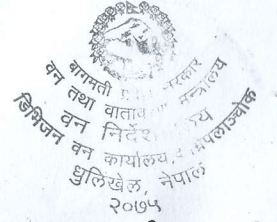 बागमती प्रदेश सरकार
वन तथा वातावरण मन्त्रालय
वन निर्देशनालय
डिभिजन वन कार्यालय, काभ्रेपलाञ्चोक
धुलिखेल, नेपाल
२०७५